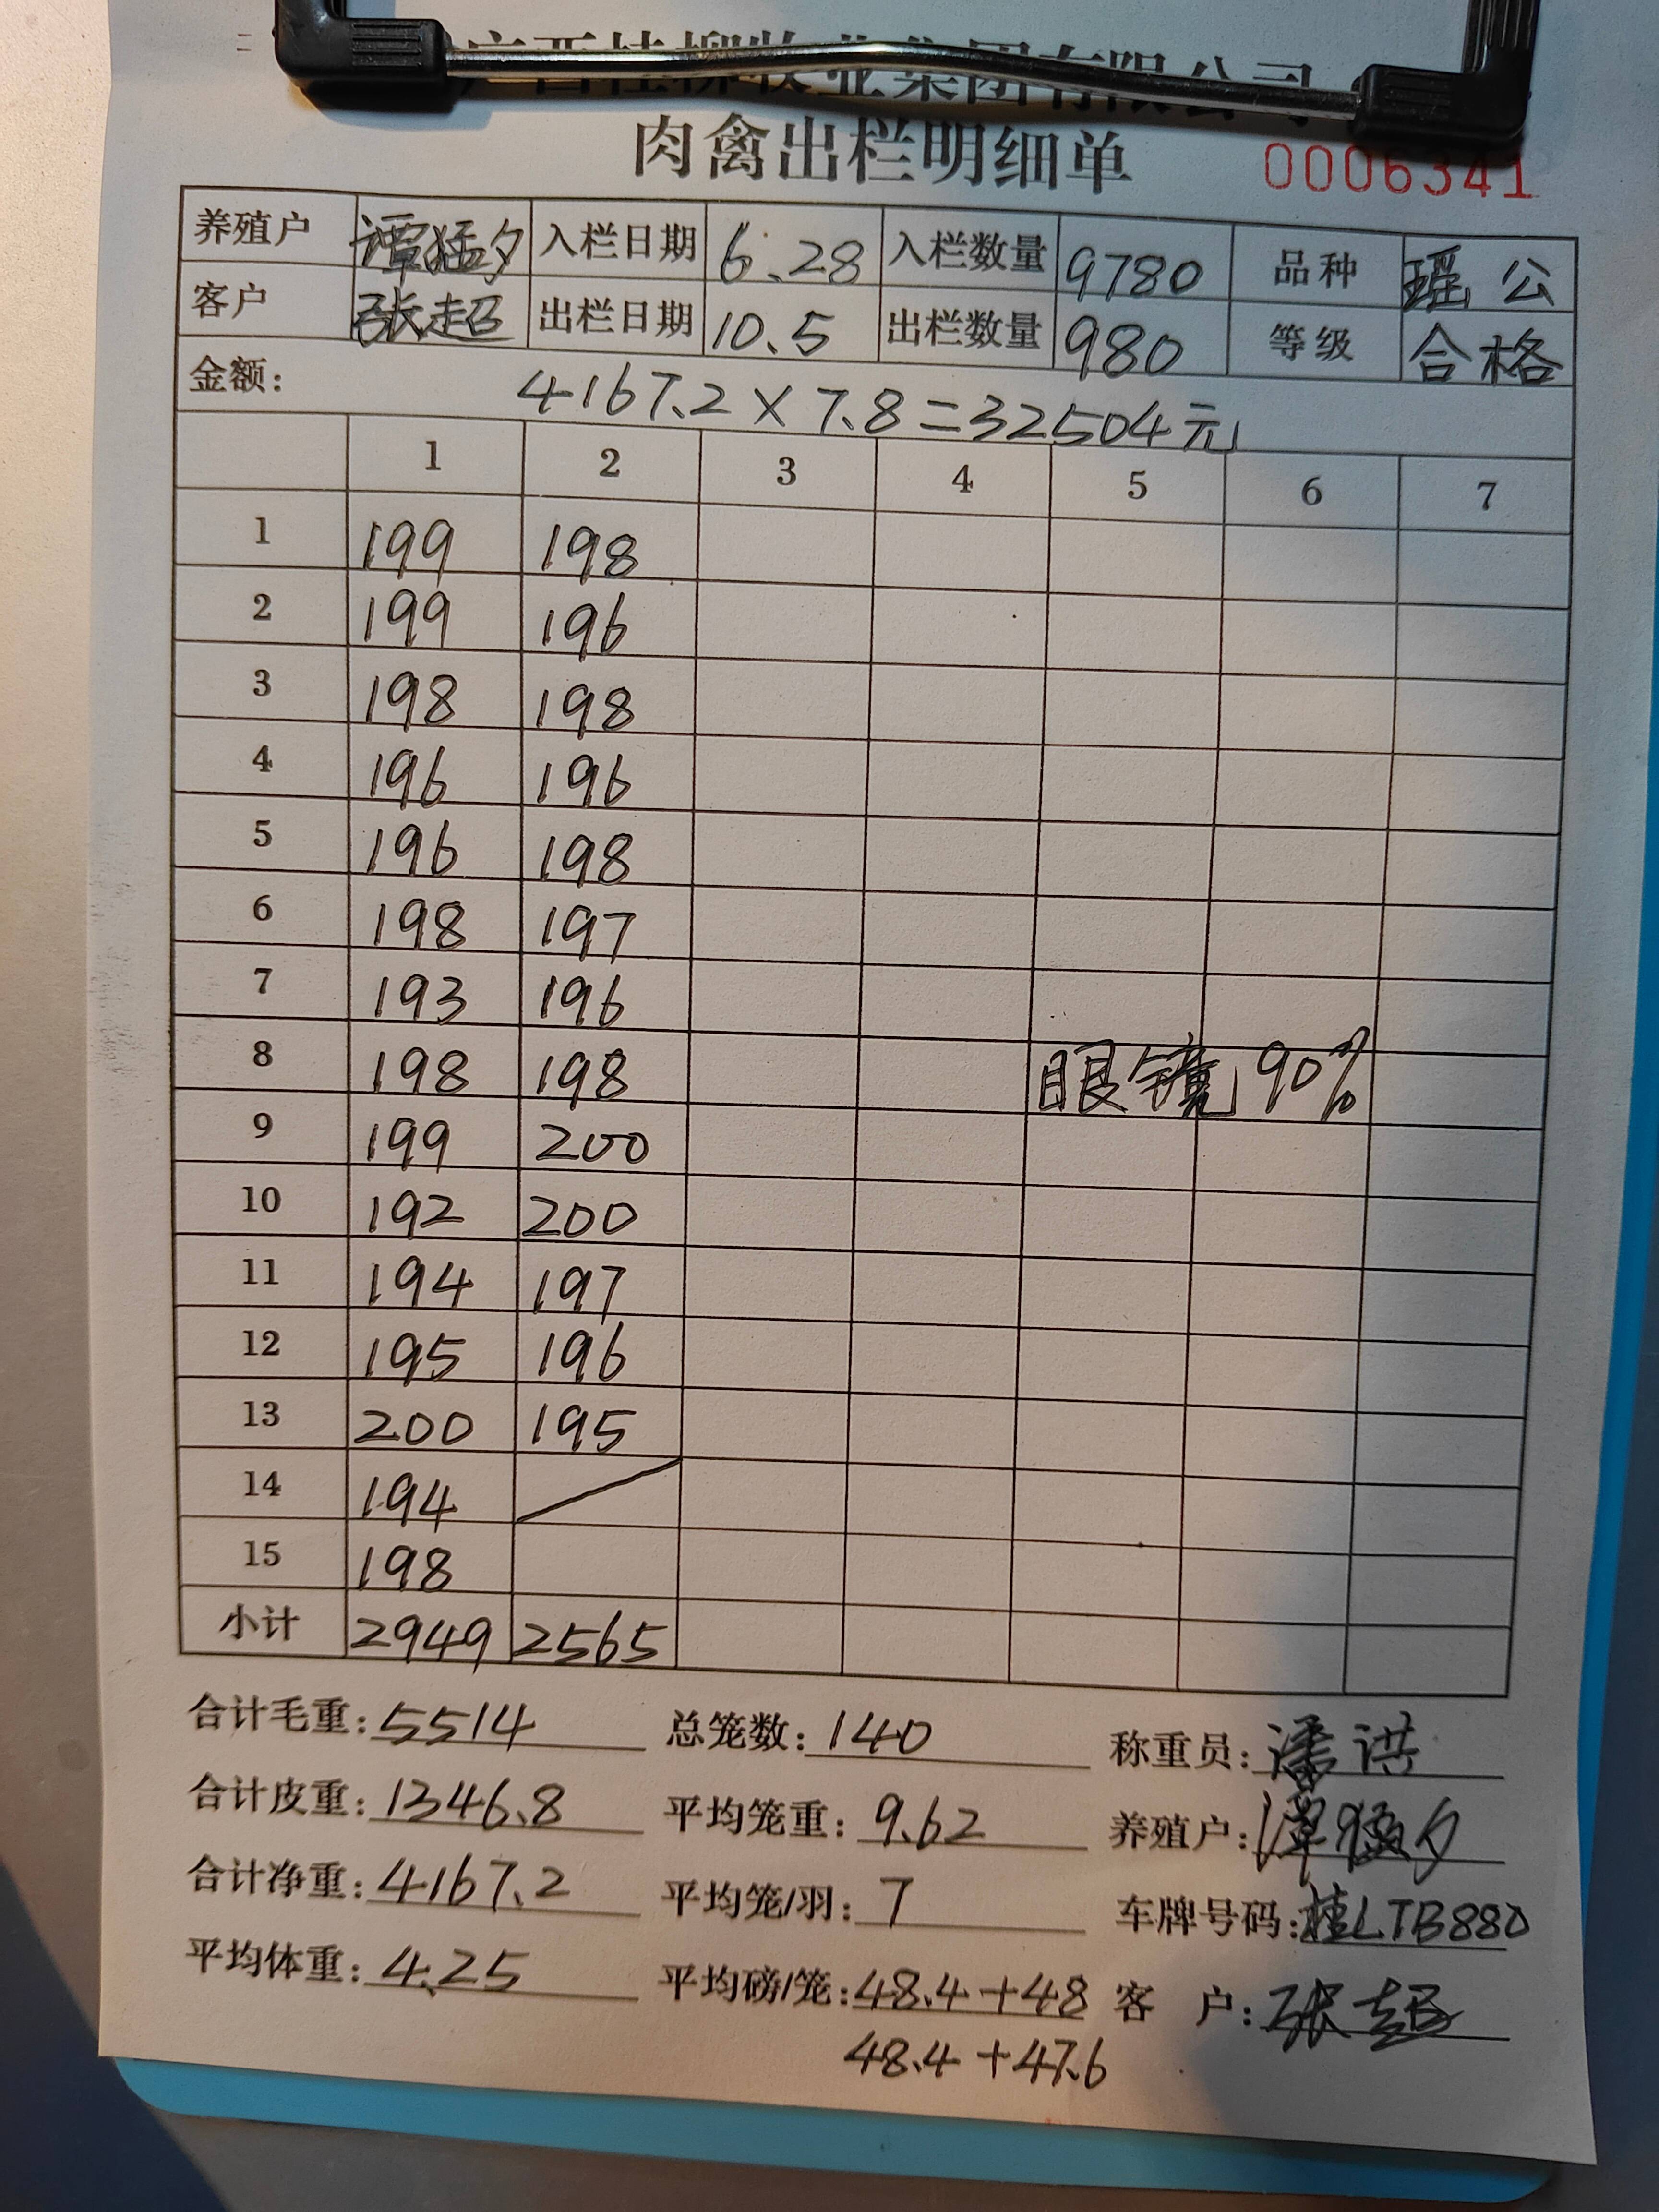 广西桂柳牧业集团有限公司
肉禽出栏明细单 0006341
养殖户 谭猛夕 入栏日期 6.28 入栏数量 9780 品种 瑶公
客户 张超 出栏日期 10.5 出栏数量 980 等级 合格
金额: 4167.2×7.8=32504元
1 2 3 4 5 6 7
1 199 198
2 199 196
3 198 198
4 196 196
5 196 198
6 198 197
7 193 196
8 198 198 眼镜90%
9 199 200
10 192 200
11 194 197
12 195 196
13 200 195
14 194
15 198
小计 2949 2565
合计毛重: 5514 总笼数: 140 称重员: 潘洪
合计皮重: 1346.8 平均笼重: 9.62 养殖户: 谭猛夕
合计净重: 4167.2 平均笼/羽: 7 车牌号码: 桂LTB880
平均体重: 4.25 平均磅/笼: 48.4+48 客 户: 张超
48.4+47.6